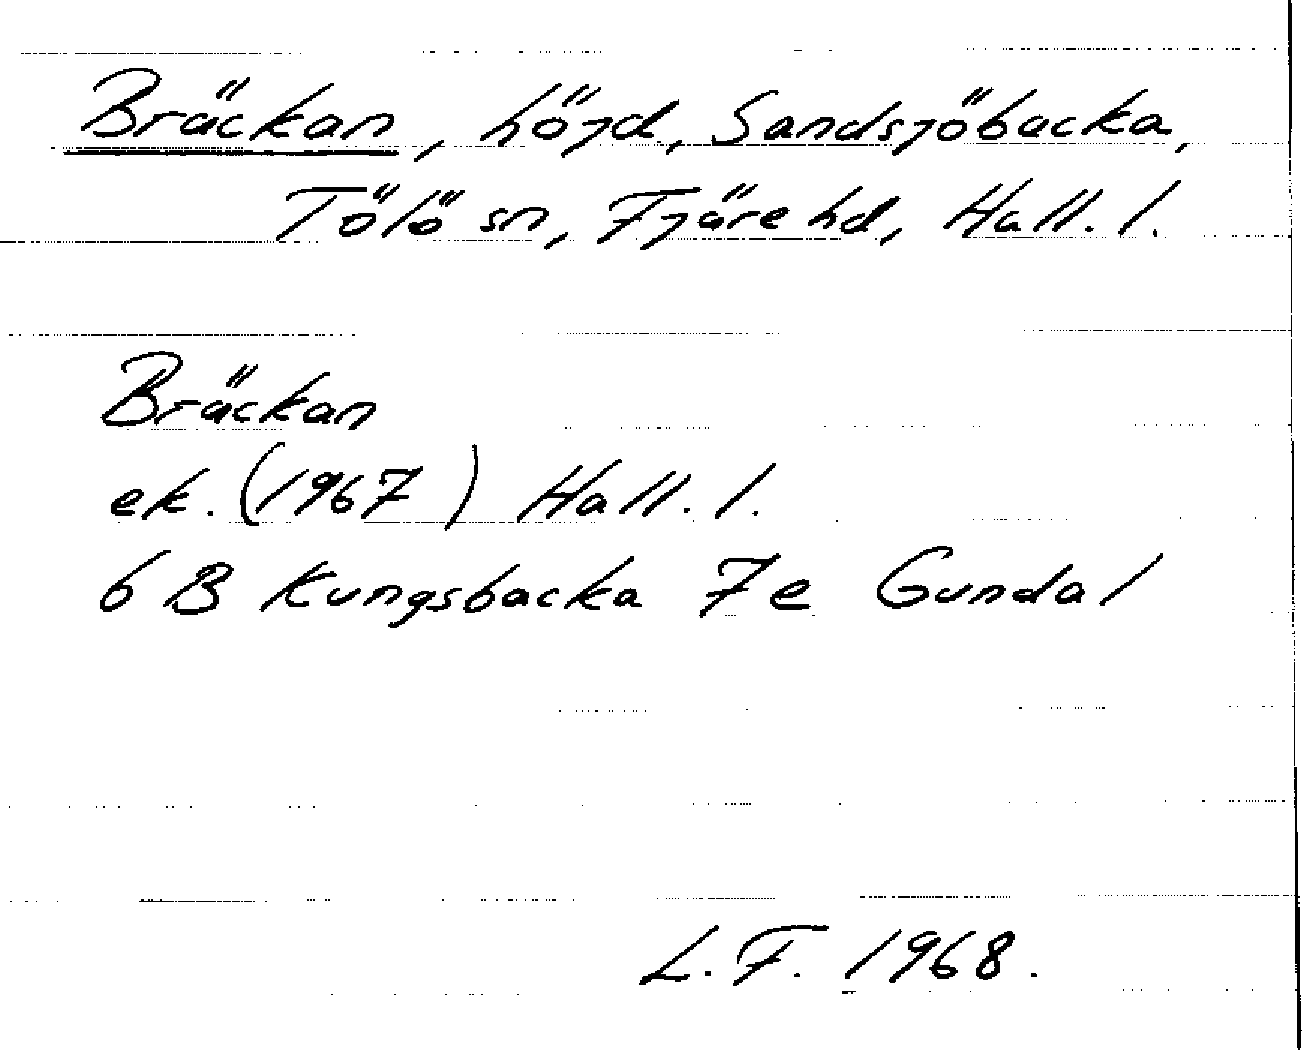 Bräckan, höjd, Sandsjöbacka,
Tölö sn, Fjäre hd, Hall. l.
Bräckan
ek. (1967) Hall. l.
6 B Kungsbacka 7e Gundal
L. F. 1968.